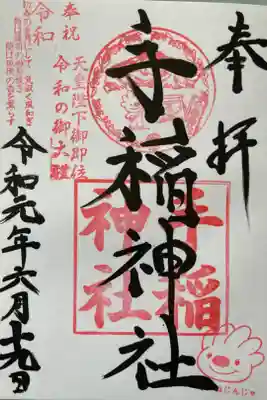 奉拝
手稲神社
手稲
神社
奉祝
天皇陛下御即位
令和の御大禮
令和
令和元年六月十九日
じんじゃ